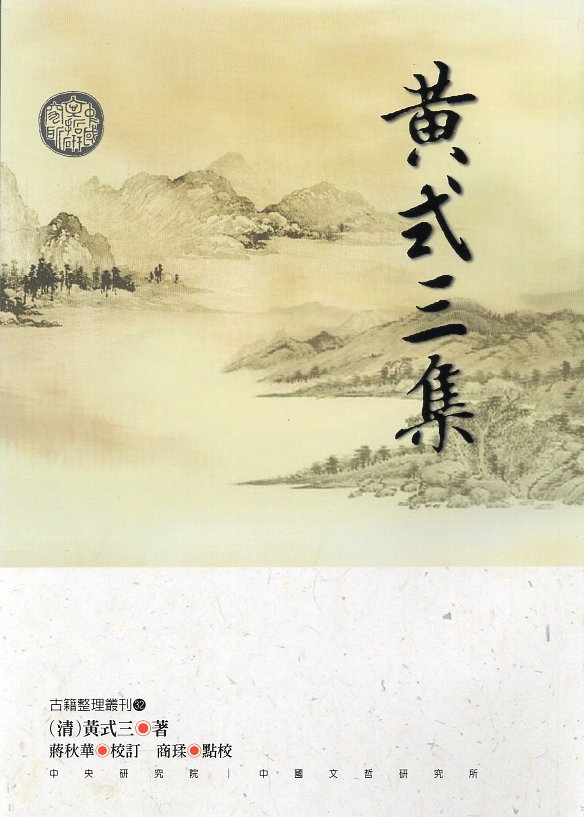 黃式三集
古籍整理叢刊32
(清)黃式三◉著
蔣秋華◉校訂 商瑈◉點校
中央研究院|中國文哲研究所